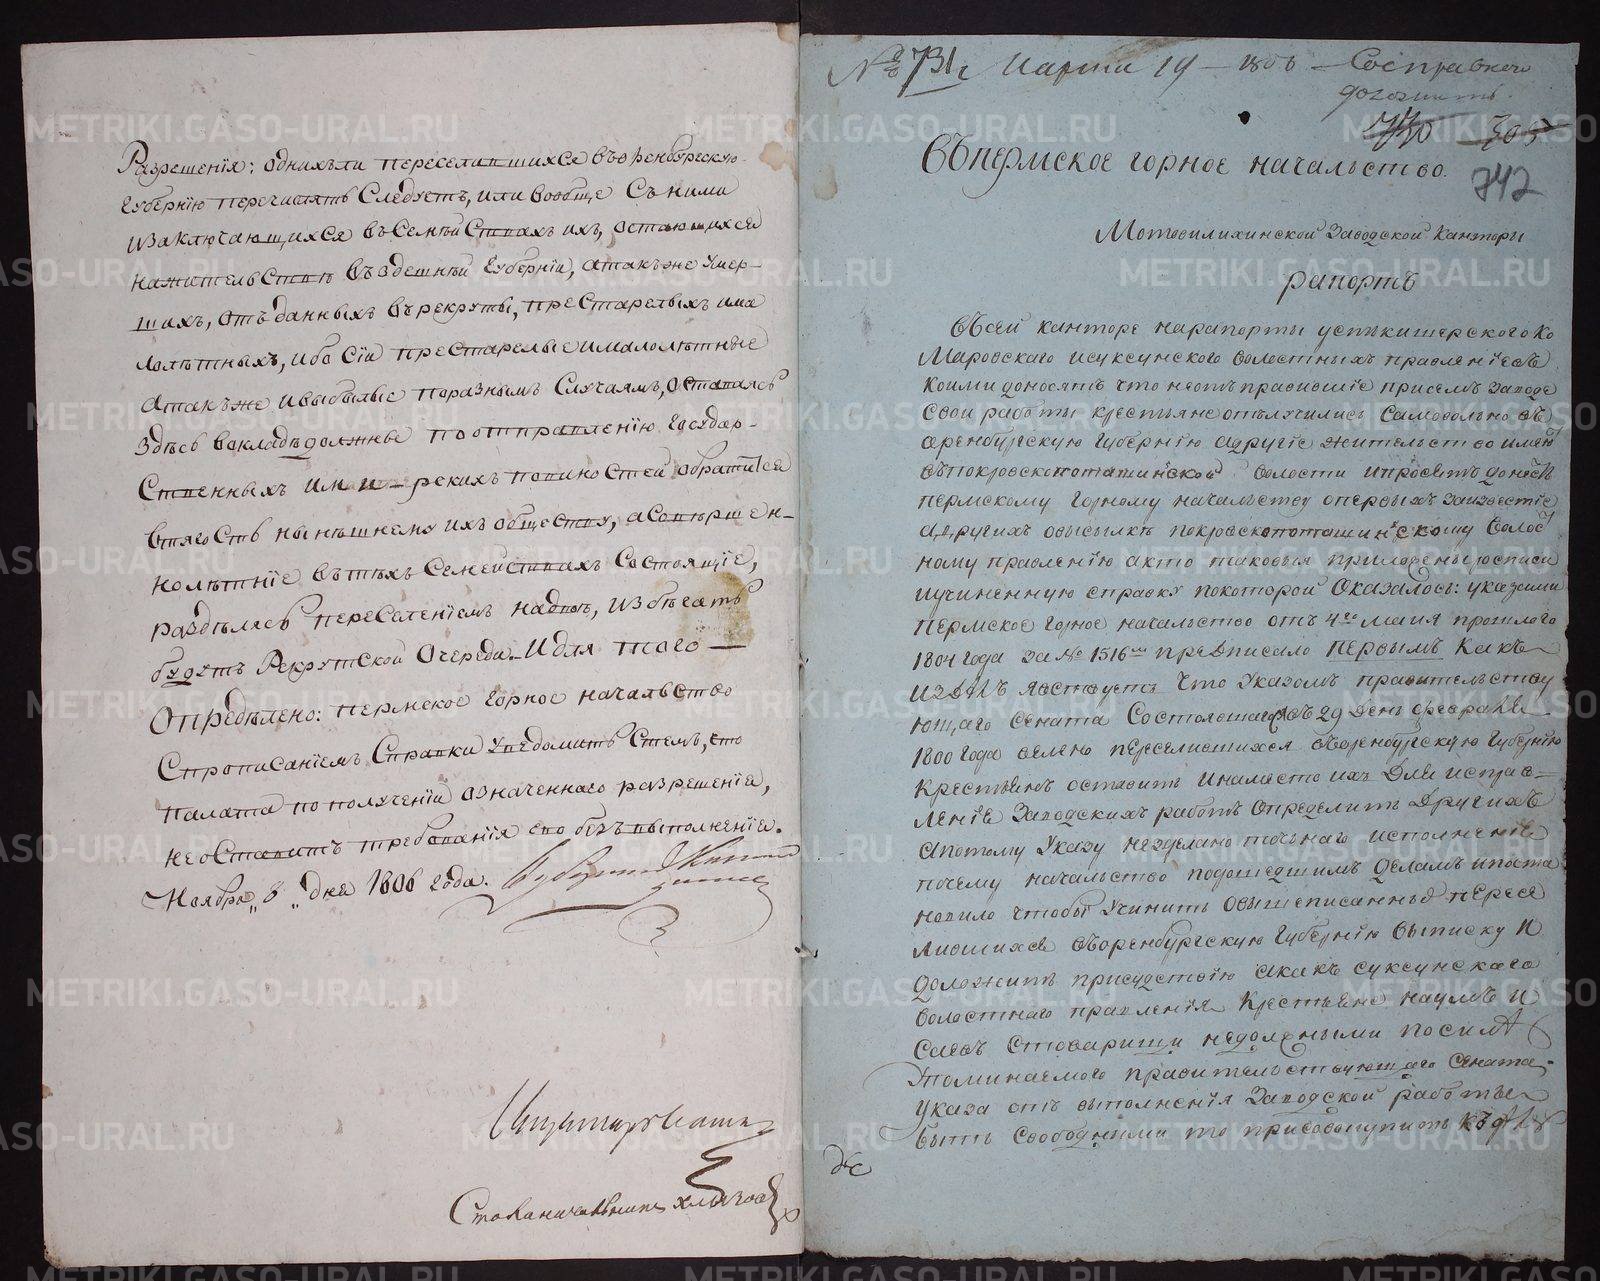 Разрешенія: однихъли переселившихся въ Оренбургскую
Губернію перечислять Следуетъ, или вообще Съ ними
изаключающихся въ Семействахъ ихъ, остающихся
нажительстве въ здешней Губерніи, атакъже умер-
шихъ, отъ данныхъ в рекруты, престарелыхъ има
лолѣтныхъ, ибо Сіи престарелые ималолѣтные
Атакъже ивыбылые поразнымъ Случаямъ, оставаясь
Здѣсь вокладѣ должны поотправленію Государ-
Ственныхъ ими рекихъ повиностей обратится
втягость нынѣшнему ихъ обществу, а Совѣршен-
нолѣтніе вътѣхъ Семействахъ Состоящіе,
раздѣлясь переселеніемъ надвое, избѣгать
будутъ Рекрутской Очереди. И для того —
Опредѣлено: пермское горное начальство
Спрописаніемъ Справки уведомить Стемъ, что
палата по полученіи означеннаго разрешенія,
неоставитъ требованія его безъ выполненія.
Ноября „8„ дня 1806 года.
Столоначальникъ
№ 731 Марта 19 1806 Сосправкою
доложить
770 305
742
Въ пермское горное начальство.
Мотовилихинской Заводской Канторы
рапортъ
Въ сей канторе нарапорты устькишерскаго Ко
Маровскаго исуксунскаго волостныхъ правленіевъ
коими доносятъ что неотъправившіе присемъ Заводе
Свои работы крестьяне отълучились Самовольно въ
Оренбургскую Губернію адругіе жительство имеютъ
въ покровскопоташинской волости ипросятъ донесть
пермскому горному начальству опервыхъ Заизвестіе
адругихъ овысылкѣ покровскопоташинскому Волост
ному правленію акто таковыя приложены росписи
иучиненную справку покоторой Оказалось: указами
пермское горное начальство отъ 4го маия прошлаго
1804 года за № 1516мъ предписало первымъ Какъ
изъ дѣлъ явствуетъ Что Указомъ правительству
ющаго Сената Состоявшагося въ 29 День февраля
1800 года велено переселившихся въ Оренбургскую Губернію
крестьянъ оставить инаместо ихъ Для исправ-
ленія Заводскихъ работъ Определить Другихъ
Апотому Указу незделано точнаго исполненія
почему начальство подошедшимъ деламъ ипоста
новило чтобы Учинить Овышеписанныхъ пересе
лившихся въ Оренбургскую Губернію выписку И
доложить присудствію Акакъ суксунскаго
волостнаго правленія Крестьяне Наумъ И
Савъ Стоварищи недолжными посилѣ
Упоминаемого правительствующаго Сената
указа отъ выполненія Заводской работы
быть Свободными то присовокупить къ дѣлу